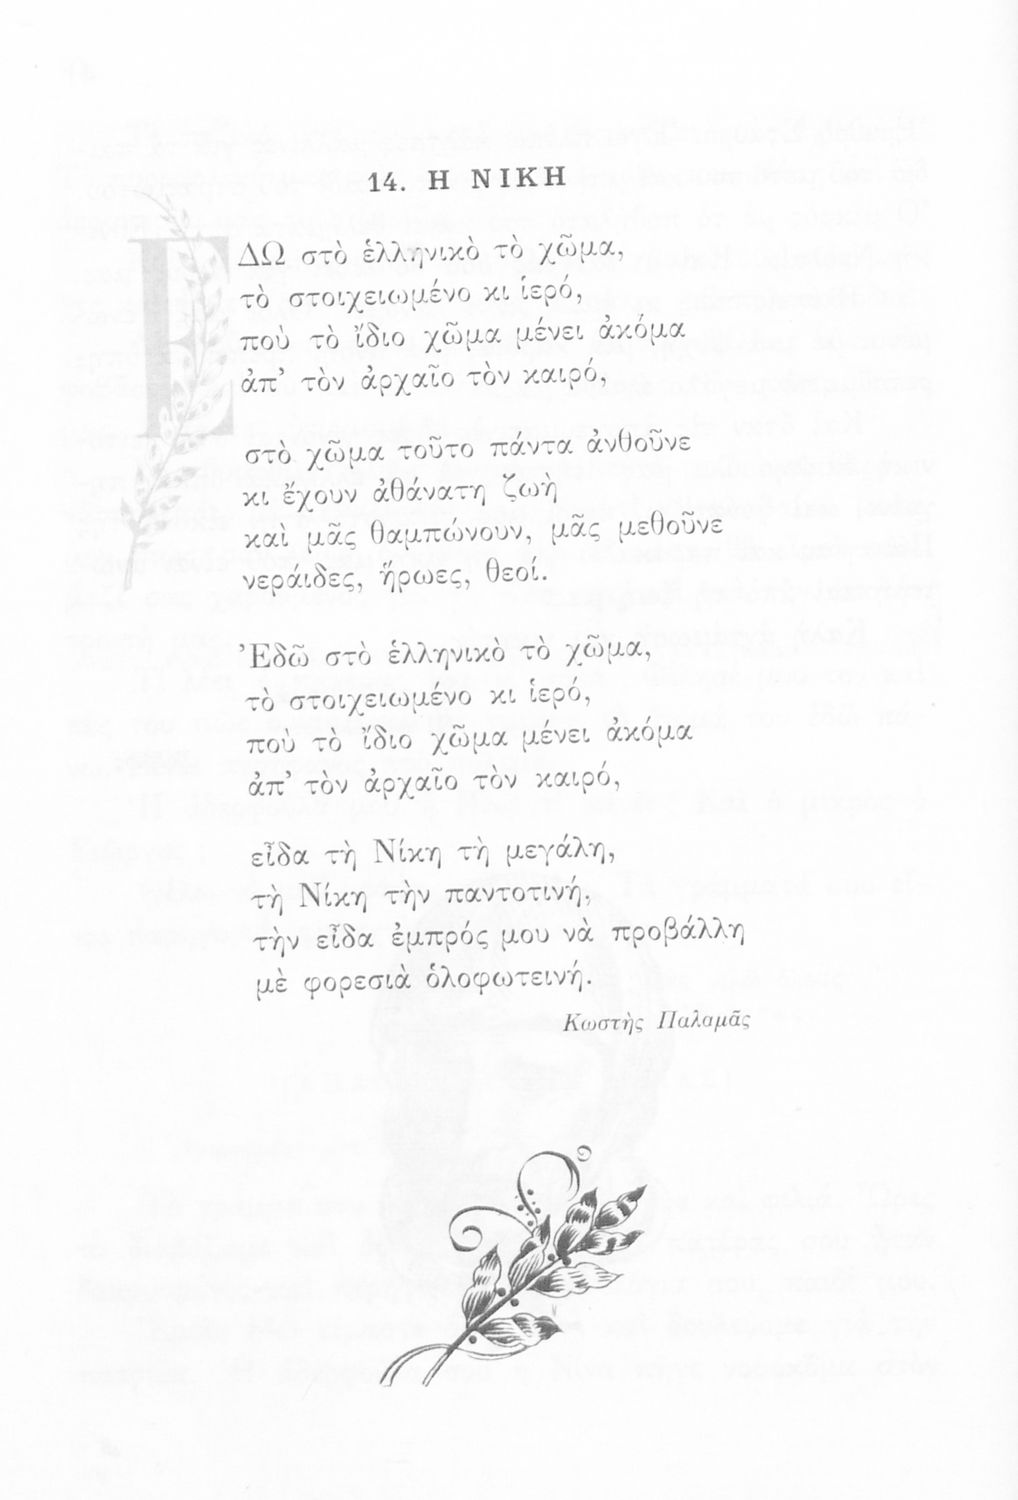 14. Η ΝΙΚΗ
ΕΔΩ στὸ ἑλληνικὸ τὸ χῶμα,
τὸ στοιχειωμένο κι ἱερό,
ποὺ τὸ ἴδιο χῶμα μένει ἀκόμα
ἀπ’ τὸν ἀρχαῖο τὸν καιρό,
στὸ χῶμα τοῦτο πάντα ἀνθοῦνε
κι ἔχουν ἀθάνατη ζωὴ
καὶ μᾶς θαμπώνουν, μᾶς μεθοῦνε
νεράιδες, ἥρωες, θεοί.
Ἐδῶ στὸ ἑλληνικὸ τὸ χῶμα,
τὸ στοιχειωμένο κι ἱερό,
ποὺ τὸ ἴδιο χῶμα μένει ἀκόμα
ἀπ’ τὸν ἀρχαῖο τὸν καιρό,
εἶδα τὴ Νίκη τὴ μεγάλη,
τὴ Νίκη τὴν παντοτινή,
τὴν εἶδα ἐμπρός μου νὰ προβάλλη
μὲ φορεσιὰ ὁλοφωτεινή.
Κωστὴς Παλαμᾶς